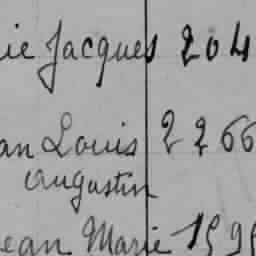 ie Jacques 204
an Louis 2266
augustin
ean Marie 159